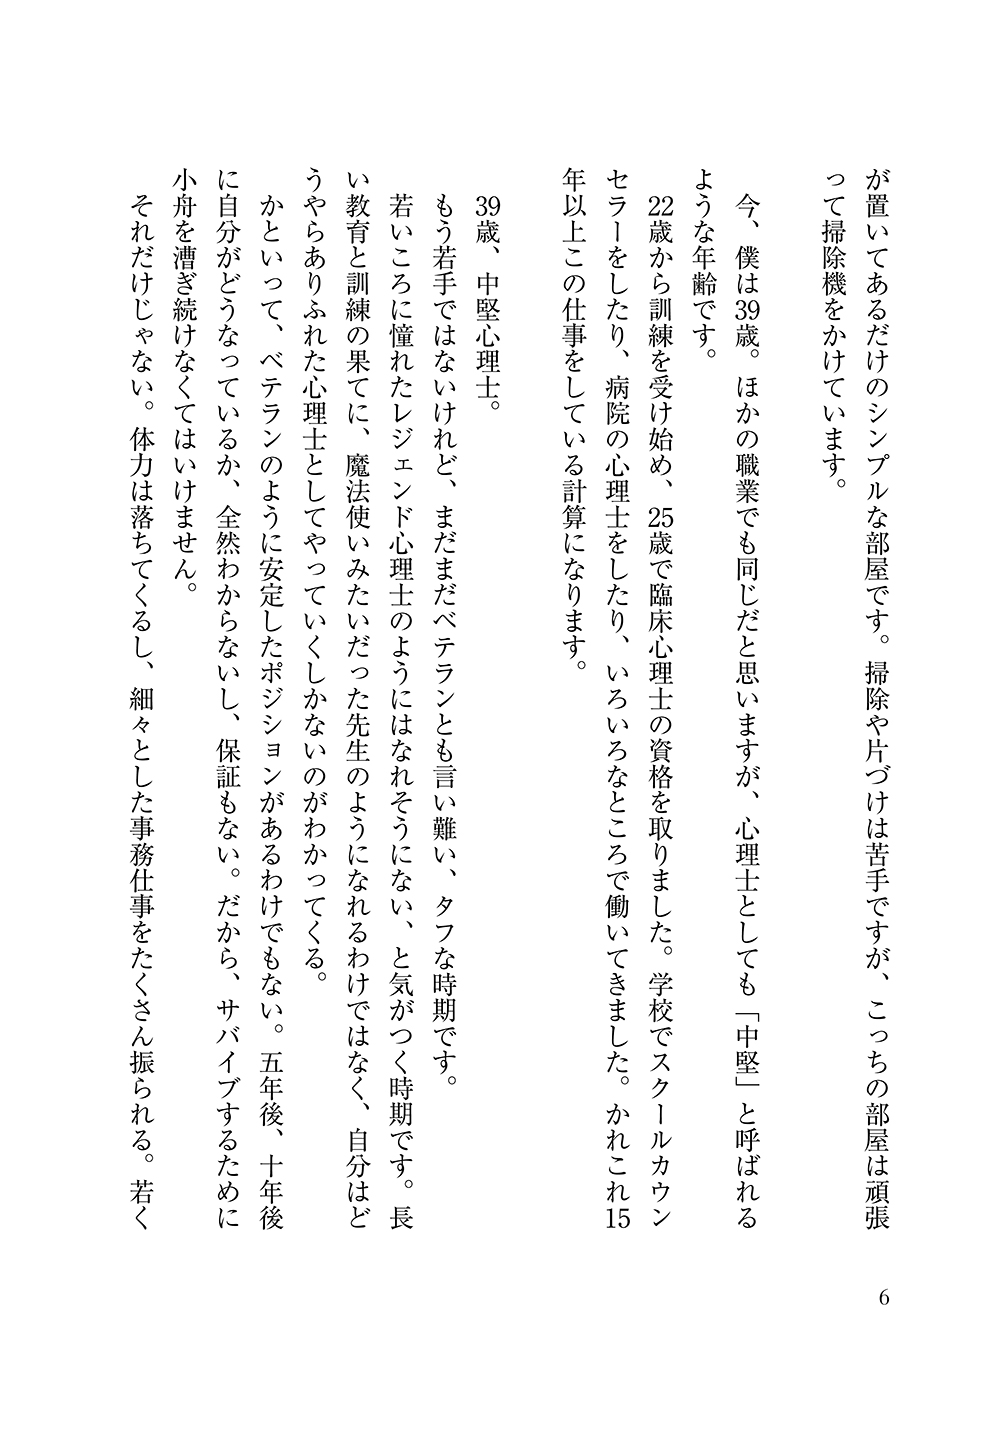 が置いてあるだけのシンプルな部屋です。掃除や片づけは苦手ですが、こっちの部屋は頑張
って掃除機をかけています。
今、僕は39歳。ほかの職業でも同じだと思いますが、心理士としても「中堅」と呼ばれる
ような年齢です。
22歳から訓練を受け始め、25歳で臨床心理士の資格を取りました。学校でスクールカウン
セラーをしたり、病院の心理士をしたり、いろいろなところで働いてきました。かれこれ15
年以上この仕事をしている計算になります。
39歳、中堅心理士。
もう若手ではないけれど、まだまだベテランとも言い難い、タフな時期です。
若いころに憧れたレジェンド心理士のようにはなれそうにない、と気がつく時期です。長
い教育と訓練の果てに、魔法使いみたいだった先生のようになれるわけではなく、自分はど
うやらありふれた心理士としてやっていくしかないのがわかってくる。
かといって、ベテランのように安定したポジションがあるわけでもない。五年後、十年後
に自分がどうなっているか、全然わからないし、保証もない。だから、サバイブするために
小舟を漕ぎ続けなくてはいけません。
それだけじゃない。体力は落ちてくるし、細々とした事務仕事をたくさん振られる。若く
6